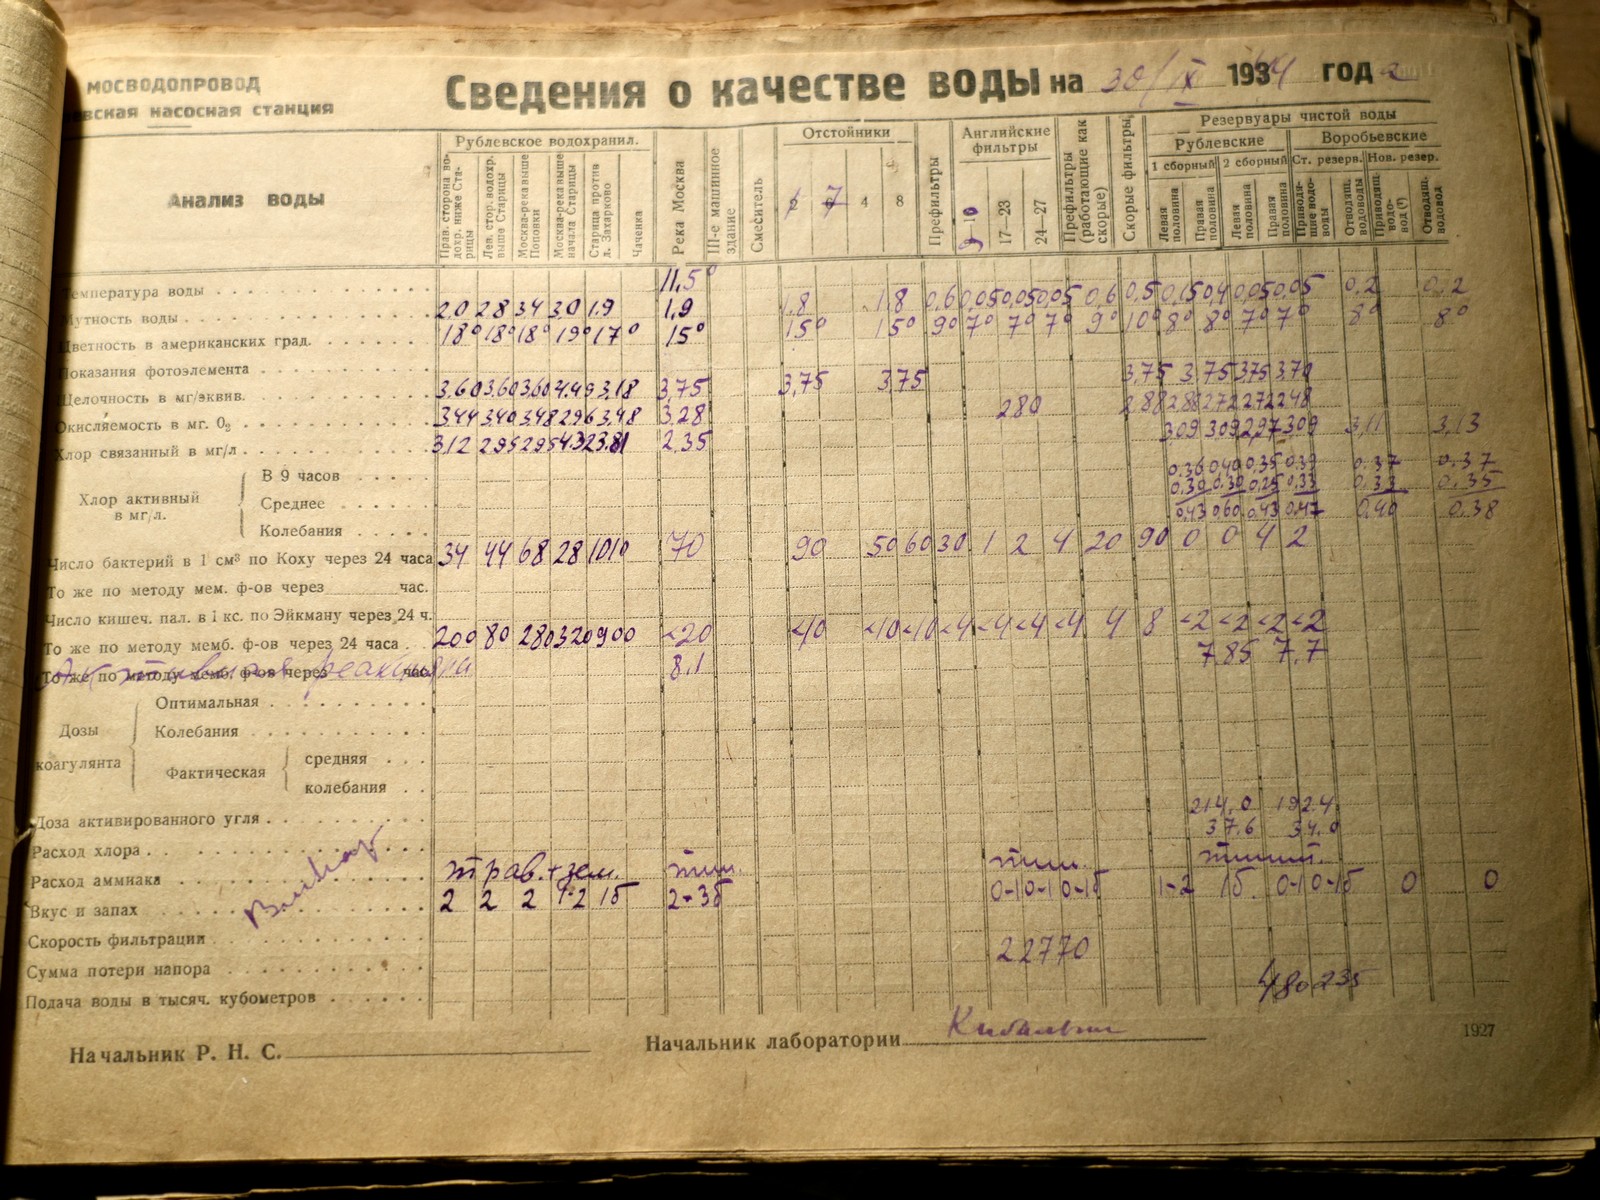 МОСВОДОПРОВОД
насосная станция
Сведения о качестве воды на 30/IX 1934 год а
Анализ воды
Рублевское водохранил.
Прав. сторона водохр. ниже Старицы
Лев. стор. водохр. выше Старицы
Москва-река выше Поповки
Москва-река выше начала Старицы
Старица против д. Захарково
Чаченка
Река Москва
III-е машинное здание
Смеситель
Отстойники
7 4 8
Префильтры
Английские фильтры
9-10 17-23 24-27
Префильтры (работающие как скорые)
Скорые фильтры
Резервуары чистой воды
Рублевские Воробьевские
1 сборный 2 сборный Ст. резерв. Нов. резер.
Левая половина
Правая половина
Левая половина
Правая половина
Приводящие водоводы
Отводящ. водоводы
Приводящ. водовод (")
Отводящ. водовод
Температура воды 11,5°
Мутность воды 2.0 2.8 3.4 3.0 1.9 1,9 1.8 1.8 0,6 0,05 0,05 0,05 0,6 0,5 0,15 0,4 0,05 0,05 0,2 0,2
Цветность в американских град. 18° 18° 18° 19° 17° 15° 15° 15° 9° 7° 7° 7° 9° 10° 8° 8° 7° 7° 8° 8°
Показания фотоэлемента
Щелочность в мг/эквив. 3,60 3,60 3,60 4.49 3,18 3,75 3,75 3,75 3,75 3,75 3,75 3,70
Окисляемость в мг. O₂ 3.44 3.40 3.48 2.96 3,48 3.28 280 2.88 2.88 2.72 2.72 2.48
Хлор связанный в мг/л 3,12 2.95 2.95 4.32 3.81 2.35 3.09 3.09 2,97 3.09 3,11 3,13
Хлор активный в мг/л.
В 9 часов 0.36 0.40 0.35 0.39 0.37 0.37
Среднее 0.30 0.30 0.25 0.33 0.33 0.35
Колебания 0,43 0,60 0.43 0.47 0,40 0.38
Число бактерий в 1 см³ по Коху через 24 часа 34 44 68 28 1010 70 90 50 60 30 1 2 4 20 90 0 0 4 2
То же по методу мем. ф-ов через час.
Число кишеч. пал. в 1 кс. по Эйкману через 24 ч.
То же по методу мемб. ф-ов через 24 часа 200 80 280 320 900 <20 <10 <10 <10 <4 <4 <4 <4 4 8 <2 <2 <2 <2
То же по методу мемб. ф-ов через час.
Активная реакция 8.1 7.85 7,7
Дозы коагулянта
Оптимальная
Колебания
Фактическая
средняя
колебания
Доза активированного угля 214,0 192.4
Расход хлора 37.6 34.0
Расход аммиака трав.+зем. тин.
Вкус и запах 2 2 2 1-2 1б 2-3б 0-1 0-1 0-1б 1-2 1б. 0-1 0-1б 0 0
Скорость фильтрации
Сумма потери напора 22770
Подача воды в тысяч. кубометров 480235
Начальник Р. Н. С.
Начальник лаборатории
1927